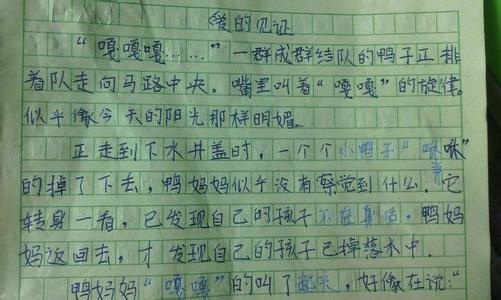 爱的见证
“嘎嘎嘎……”一群成群结队的鸭子正排
着队走向马路中央。嘴里叫着“嘎嘎”的旋律。
似乎像今天的阳光那样明媚。
正走到下水井盖时，一个个小鸭子“咻咻”
的掉了下去，鸭妈妈似乎没有察觉到什么。它
转身一看，已发现自己的孩子不在身后。鸭妈
妈返回去，才发现自己的孩子已掉落水中。
鸭妈妈“嘎嘎”的叫了起来，好像在说：“